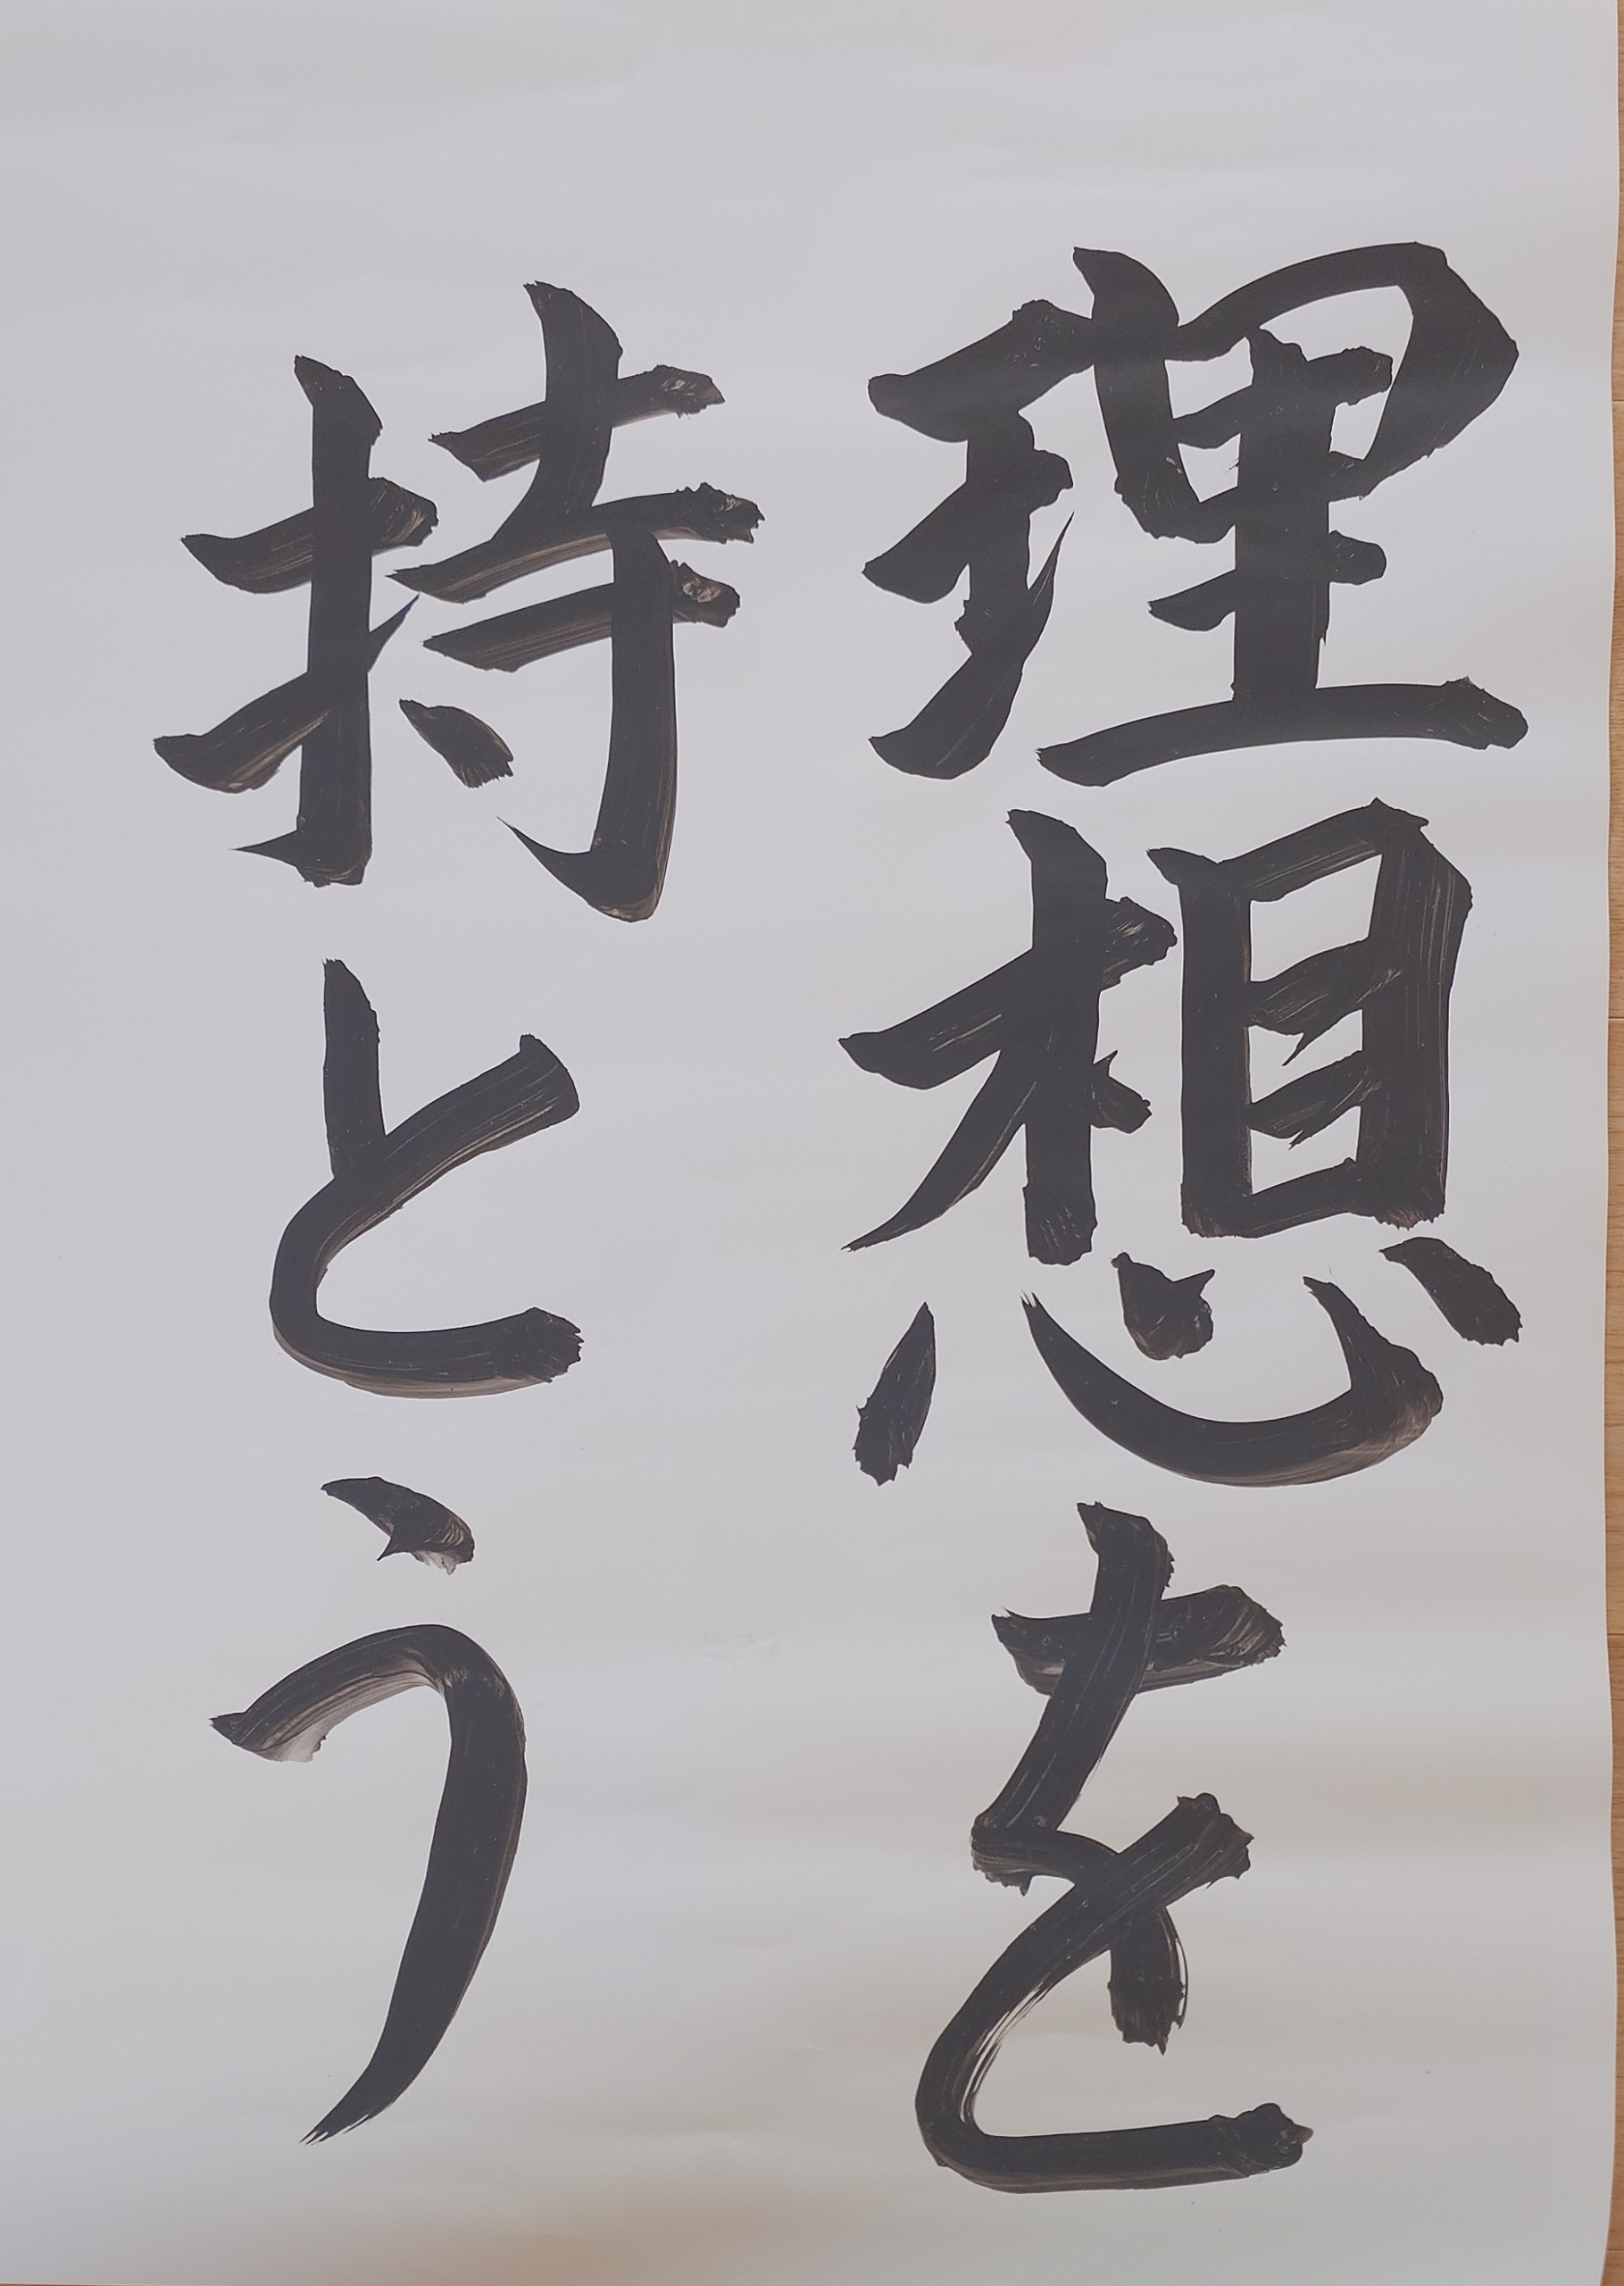 理想を
持とう